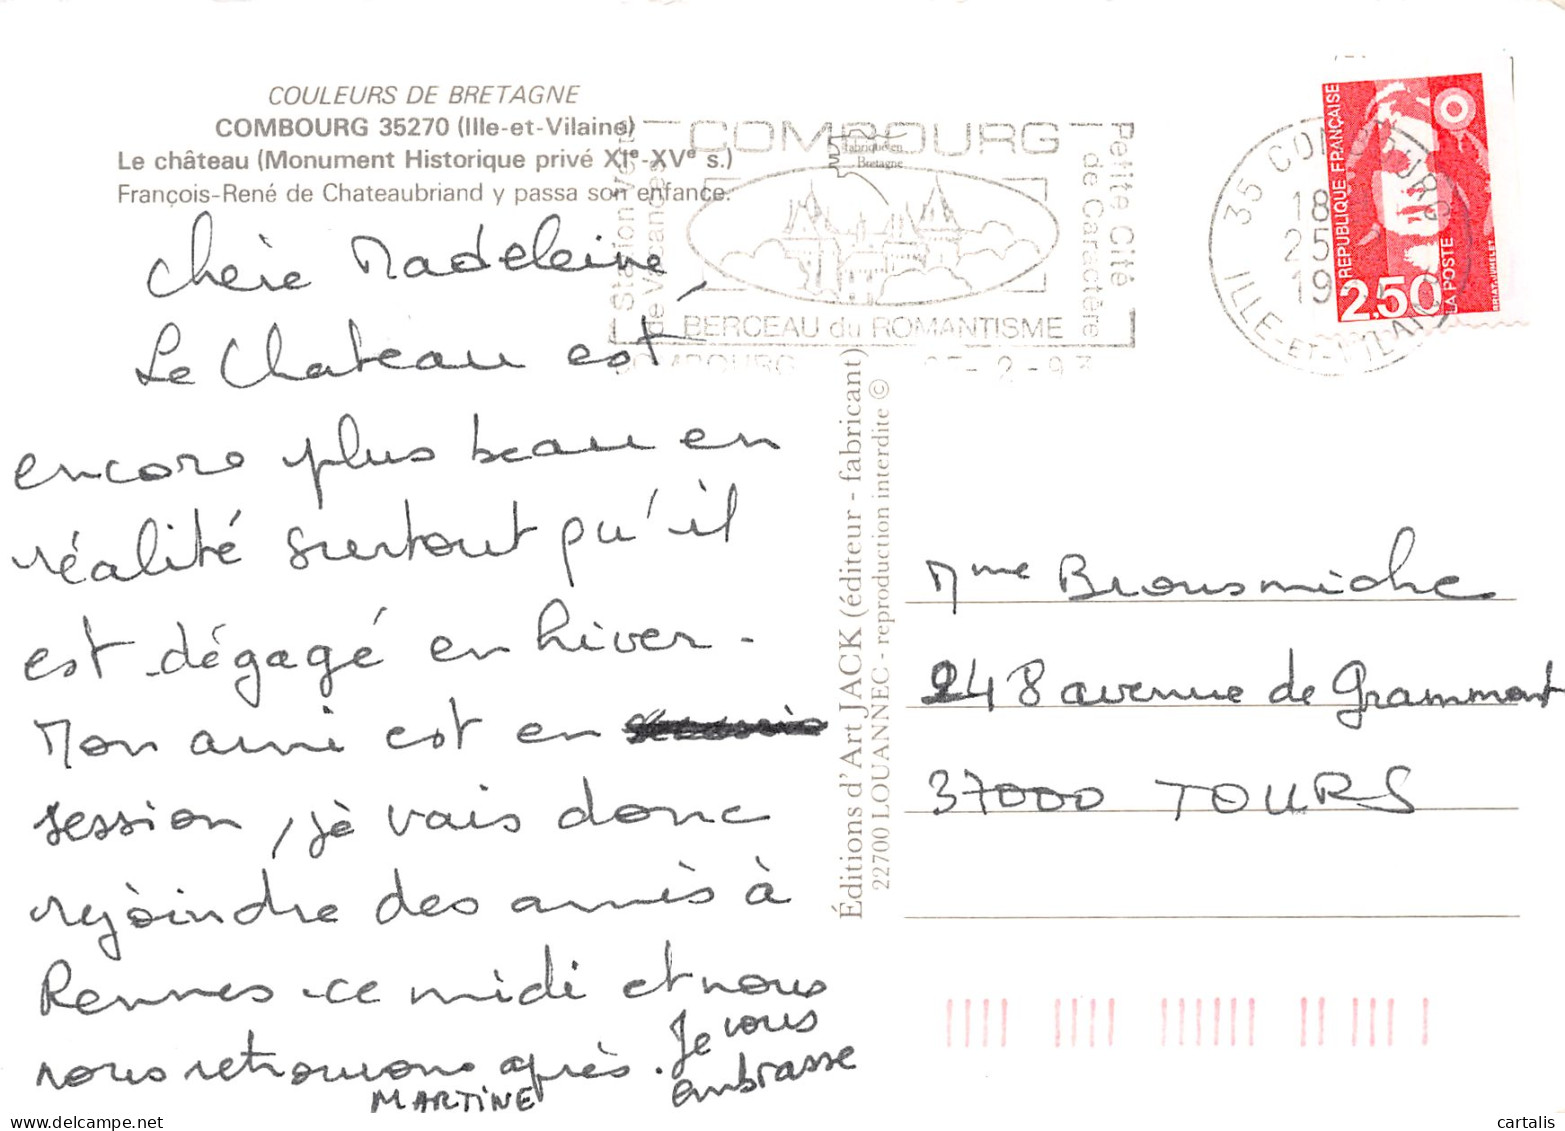 COULEURS DE BRETAGNE
COMBOURG 35270 (Ille-et-Vilaine)
Le château (Monument Historique privé XIe-XVe s.)
François-René de Chateaubriand y passa son enfance.
fabriqué en
Bretagne
COMBOURG
Station Verte
de Vacances
Petite Cité
de Caractère
BERCEAU du ROMANTISME
COMBOURG 25-2-93
35 COMBOURG
18
25
19
ILLE-ET-VILAINE
RÉPUBLIQUE FRANÇAISE
2,50
LA POSTE
Chère Madeleine,
Le Chateau est
encore plus beau en
réalité surtout qu'il
est dégagé en hiver.
Mon ami est en
session, je vais donc
rejoindre des amis à
Rennes ce midi et nous
nous retrouvons après. Je vous
embrasse
MARTINE
Éditions d'Art JACK (éditeur - fabricant)
22700 LOUANNEC - reproduction interdite ©
Mme Brousmiche
248 avenue de Grammont
37000 TOURS
cartalis